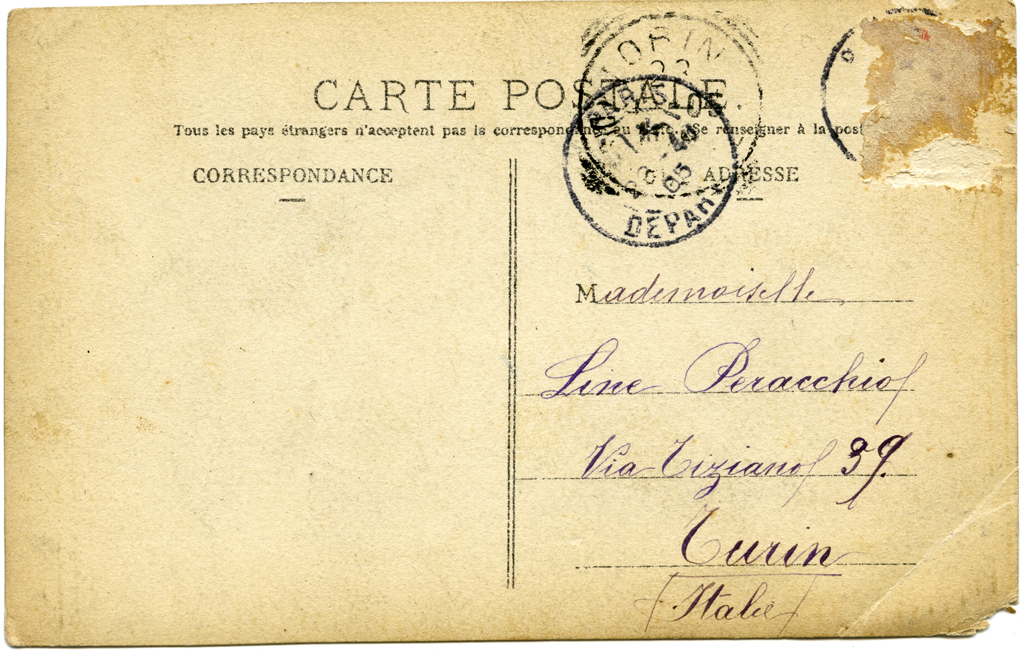 TORIN
CARTE POSTALE.
Tous les pays étrangers n'acceptent pas la correspondance au . Se renseigner à la post
CORRESPONDANCE
ADRESSE
05
DÉPART
Mademoiselle
Line Peracchio
Via Tiziano 39.
Turin
(Italie)